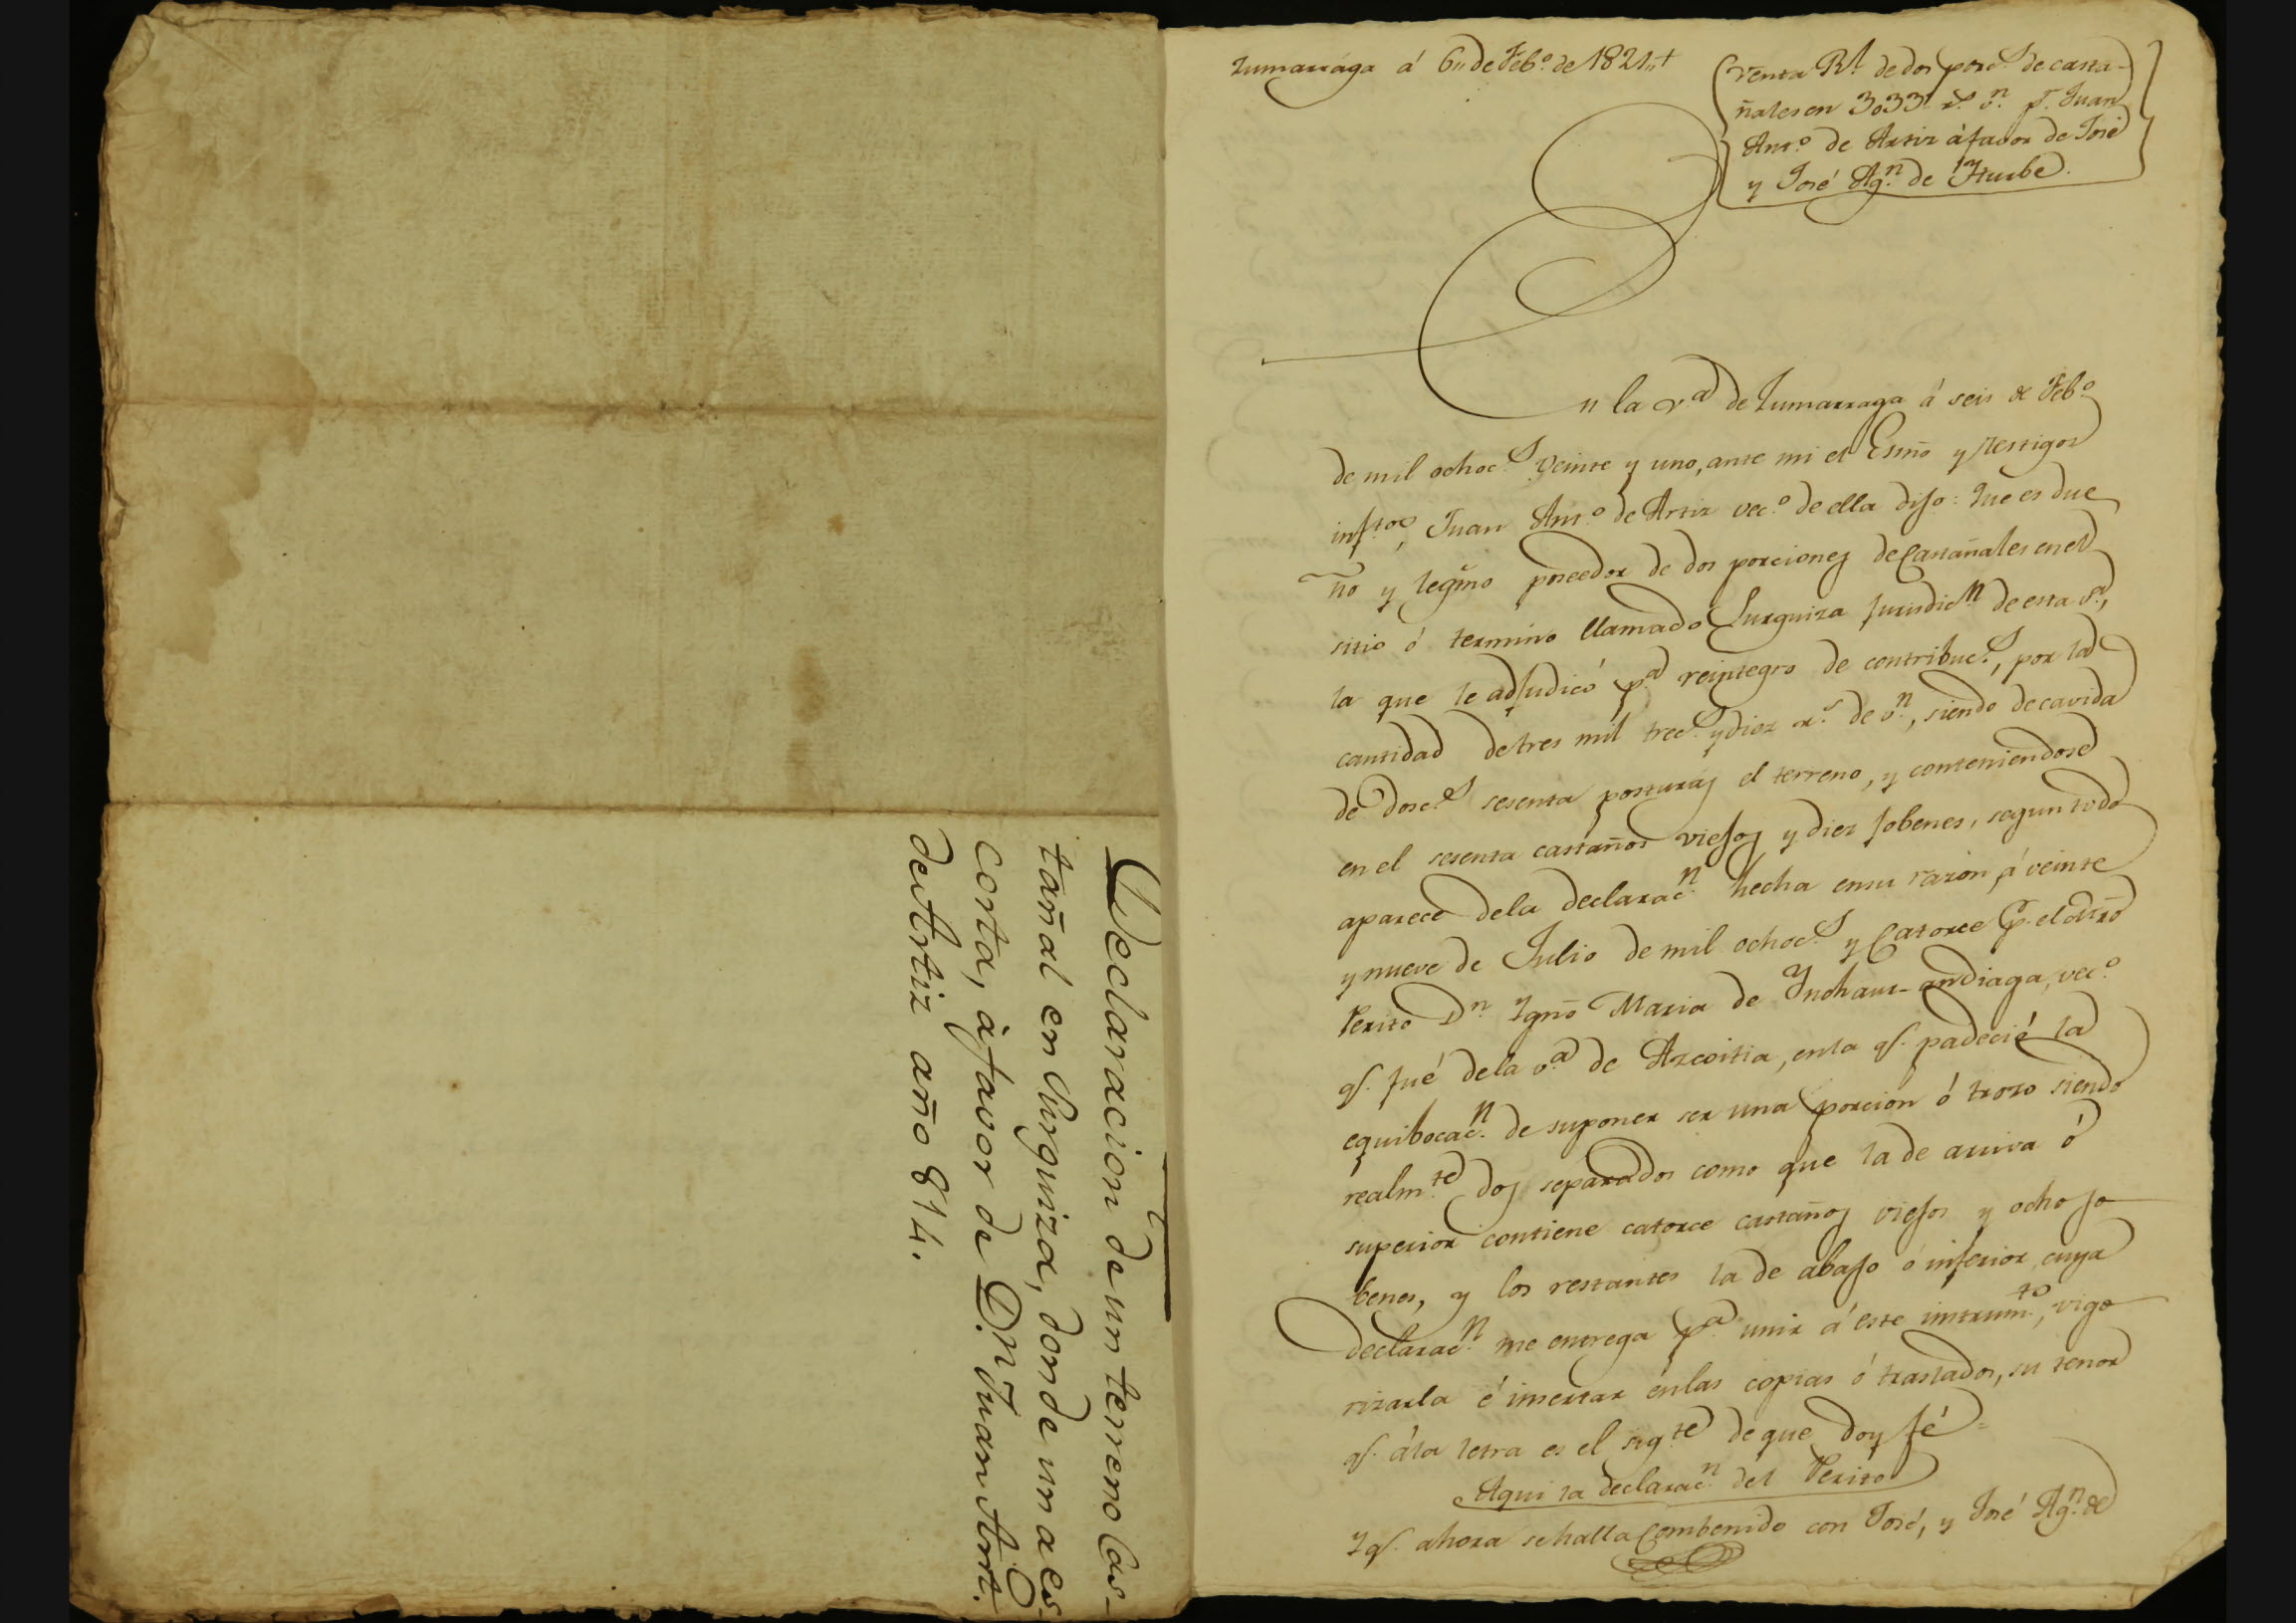 Declaracion de un terreno Cas-
tañal en Lurguiza, donde una es-
corta, à favor de D.n Juan Ant.o
de Artiz año 814.
Zumarraga á 6,, de Feb.o de 1821,,+
Venta Rl. de dos porc.s de casta-
ñales en 3033 r.s v.n p.r Juan
Ant.o de Artiz à favor de José
y José Ag.n de Yturbe.
En la v.a de Zumarraga á seis de Feb.o
de mil ochoc.s veinte y uno, ante mi el Esño y testigos
infros, Juan Ant.o de Artiz vec.o de ella dijo: Que es due
ño y legmo poseedor de dos porciones de Castañales en el
sitio ó termino llamado Lurguiza jurisdic.n de esta v.a,
la que le adjudicó p.a reintegro de contribuc.s, por la
cantidad de tres mil trec.s y diez r.s de v.n, siendo de cavida
de dosc.s sesenta posturas el terreno, y conteniendose
en el sesenta castaños viejos y diez jobenes, segun todo
aparece de la declarac.n hecha en su razon á veinte
y nueve de Julio de mil ochoc.s y Catorce p.r el
Perito D.n Ygnõ Maria de Ynchaur-andiaga, vec.o
q.e fué de la v.a de Azcoitia, en la q.e padeció la
equibocac.n de suponer ser una porcion ó trozo siendo
realm.te dos separados como que la de arriva ó
superior contiene catorce castaños viejos y ocho jo
benes, y los restantes la de abajo ó inferior, cuya
declarac.n me entrega p.a unir á este instrum.to, vigo
rizarla é insertar en las copias ó traslados, su tenor
q.e á la letra es el sig.te de que doy fé =
Aqui la declarac.n del Perito
Y q.e ahora se halla Combenido con José, y José Ag.n de